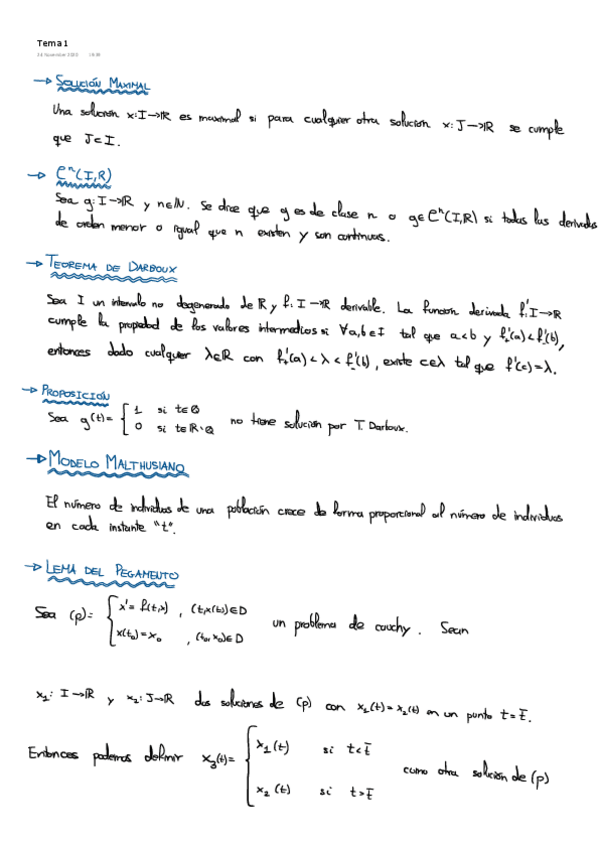 Tema 1
→ SOLUCIÓN MAXIMAL
Una solución x: I→R es maximal si para cualquier otra solución x: J→R se cumple
que J⊂I.
→ Cⁿ(I,R)
Sea g: I→R y n∈N. Se dice que g es de clase n o g∈Cⁿ(I,R) si todas las derivadas
de orden menor o igual que n existen y son continuas.
→ TEOREMA DE DARBOUX
Sea I un intervalo no degenerado de R y f: I→R derivable. La función derivada f': I→R
cumple la propiedad de los valores intermedios si ∀a,b∈I tal que a<b y f'(a)<f'(b),
entonces dado cualquier λ∈R con f'(a)<λ<f'(b), existe c∈λ tal que f'(c)=λ.
→ PROPOSICIÓN
Sea g(t)= { 1 si t∈Q
0 si t∈R\Q no tiene solución por T. Darboux.
→ MODELO MALTHUSIANO
El número de individuos de una población crece de forma proporcional al número de individuos
en cada instante "t".
→ LEMA DEL PEGAMENTO
Sea (p)= { x'= f(t,x) , (t,x(t))∈D
x(t₀)=x₀ , (t₀,x₀)∈D un problema de cauchy. Sean
x₁: I→R y x₂: J→R dos soluciones de (p) con x₁(t)=x₂(t) en un punto t=t̄.
Entonces podemos definir x₃(t)= { x₁(t) si t<t̄
x₂(t) si t>t̄ como otra solución de (p)